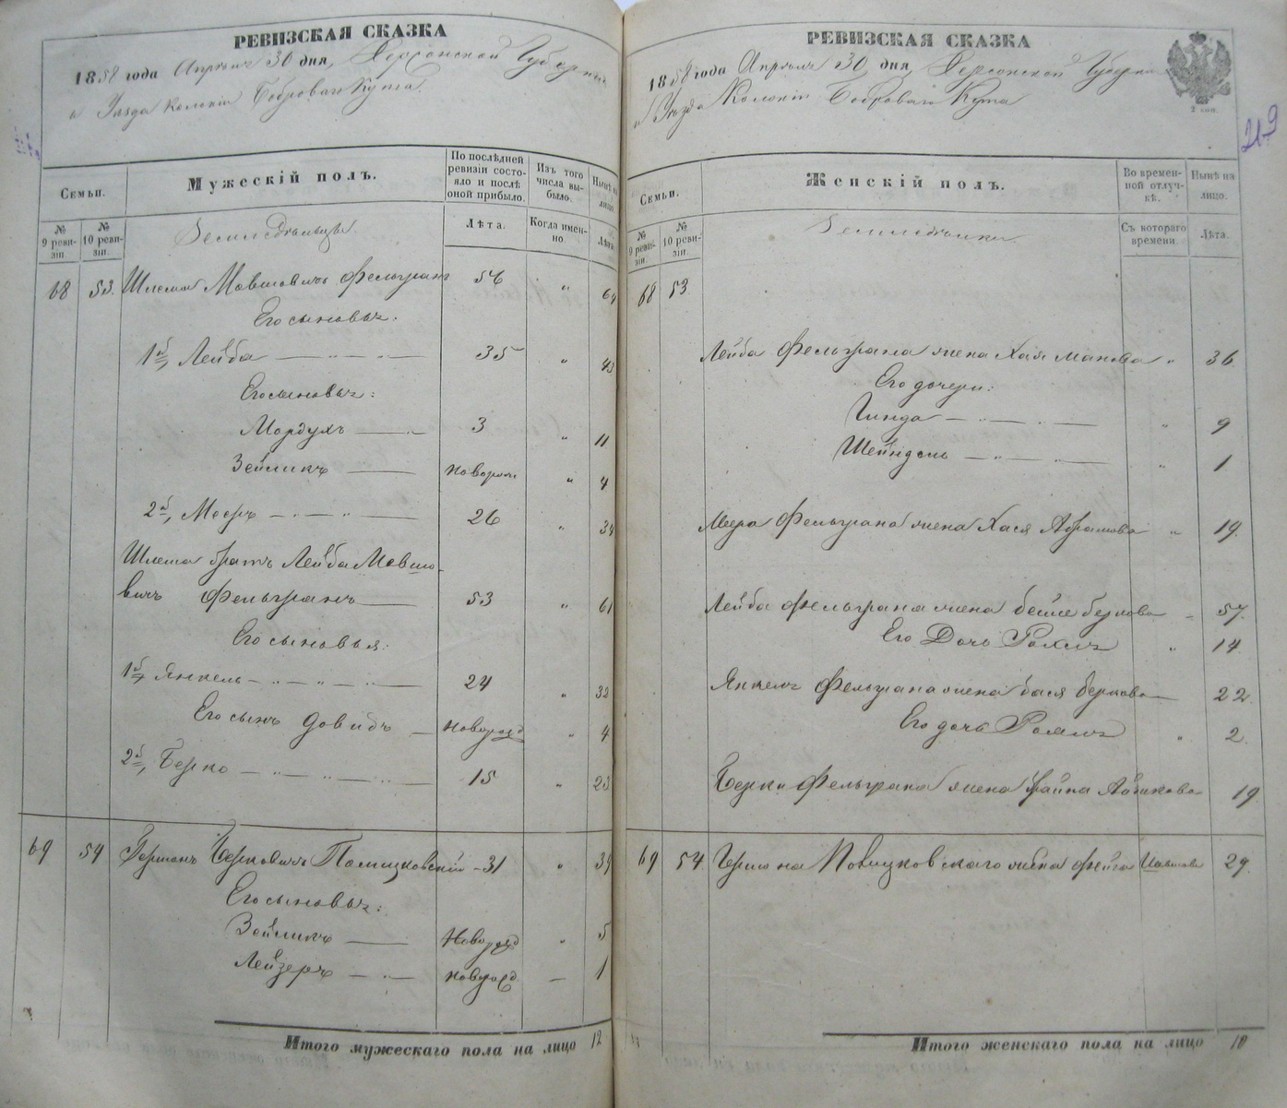 РЕВИЗСКАЯ СКАЗКА
1858 года Апреля 30 дня, Херсонской Губерніи
и Уезда Колоніи Боброваго Кута
Семьи.
Мужескій полъ.
По послѣдней ревизіи состояло и послѣ оной прибыло.
Изъ того числа выбыло.
Нынѣ на лицо.
№ 9 ревизіи.
№ 10 ревизіи.
Земледельцы
Лѣта.
Когда именно
Лѣта
68 53. Шлема Мовшовичъ Фельгранъ 56 „ 64
Его сыновья:
1й, Лейба — „ — „ — 35 „ 43
Его сыновья:
Мордухъ — „ — 3 „ 11
Зейликъ — новорож „ 4
2й, Мееръ — „ — „ — 26 „ 34
Шлема братъ Лейба Мовшо-
вичъ Фельгранъ — 53 „ 61
Его сыновья:
1й, Янкель — „ — „ — „ — 24 „ 32
Его сынъ Довидъ — новорожд „ 4
2й, Берко — „ — „ — 15 „ 23
69 54 Берковичъ — 31 „ 39
Его сыновья:
Зейликъ — Новорожд „ 5
Лейзеръ — „ — новорожд — 1
Итого мужескаго пола на лицо 12
РЕВИЗСКАЯ СКАЗКА
1858 года Апреля 30 дня, Херсонской Губерніи
и Уезда Колоніи Боброваго Кута
2 коп.
219
Семьи.
Женскій полъ.
Во временной отлучкѣ.
Нынѣ на лицо.
№ 9 ревизіи.
№ 10 ревизіи.
Съ котораго времени.
Лѣта.
68 53
Лейба Фельграна жена Хая „ 36
Его дочери:
Гинда — „ — „ — „ 9
Шейндель — „ — „ — „ 1
Меера Фельграна жена Хася Абрамова „ 19.
Лейба Фельграна жена Бейле Беркова „ 57.
Его Дочь Рохля „ 14.
Янкеля Фельграна жена Бася Беркова — 22
Его дочь Рохля „ 2.
Берки Фельграна жена 19
69 54 жена Фейга 29.
Итого женскаго пола на лицо 10